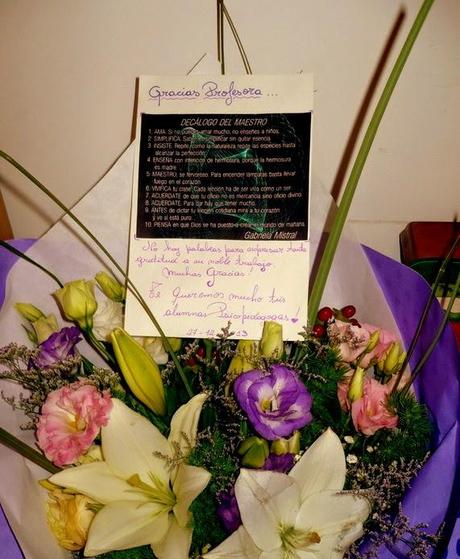 Gracias Profesora...
DECÁLOGO DEL MAESTRO
1. AMA. Si no puedes amar mucho, no enseñes a niños.
2. SIMPLIFICA. Saber es simplificar sin quitar esencia.
3. INSISTE. Repite como la naturaleza repite las especies hasta
alcanzar la perfección.
4. ENSEÑA con intención de hermosura, porque la hermosura
es madre.
5. MAESTRO, se fervoroso. Para encender lámparas basta llevar
fuego en el corazón.
6. VIVIFICA tu clase. Cada lección ha de ser viva como un ser.
7. ACUÉRDATE de que tu oficio no es mercancía sino oficio divino.
8. ACUÉRDATE. Para dar hay que tener mucho.
9. ANTES de dictar tu lección cotidiana mira a tu corazón
y ve si está puro.
10. PIENSA en que Dios se ha puesto a crear el mundo de mañana.
Gabriela Mistral
No hay palabras para expresar tanta
gratitud a su noble trabajo.
Muchas Gracias!
Te Queremos mucho tus
alumnas Psicopedagogas!